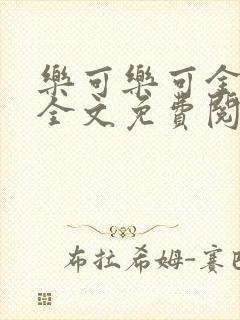 樂可樂可全
全文免費閱
布拉希姆-賽巴